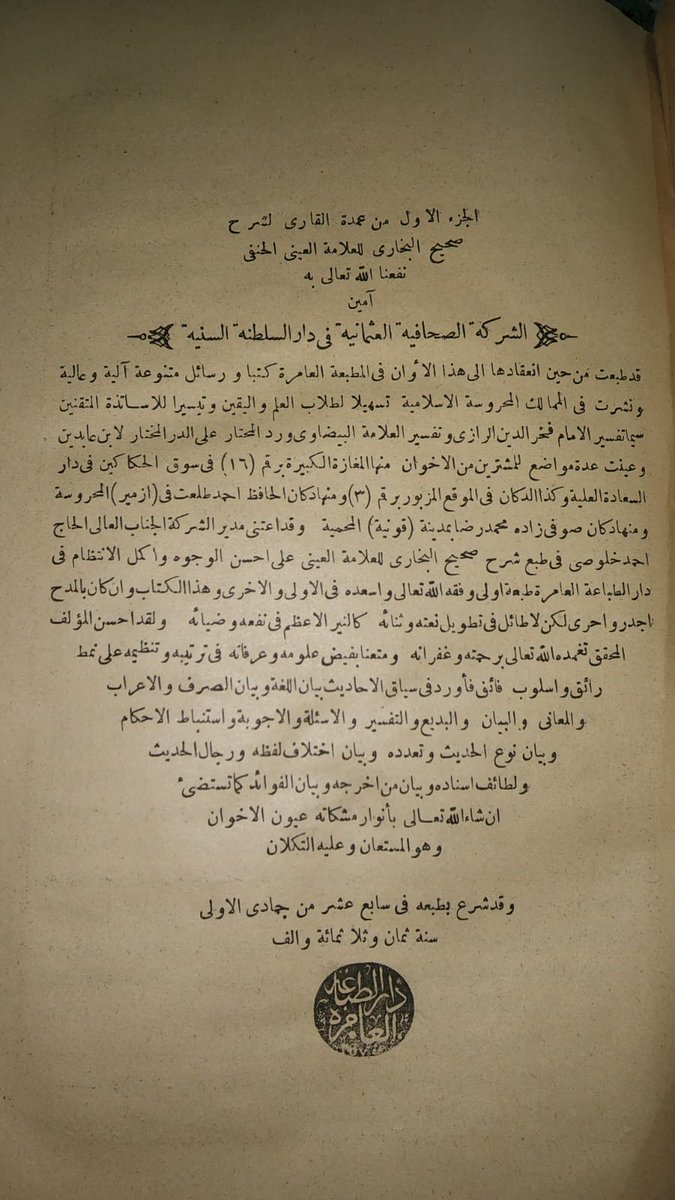 الجزء الاول من عمدة القارى لشرح
صحيح البخارى للعلامة العينى الحنفى
نفعنا الله تعالى به
آمين
الشركة الصحافية العثمانية فى دار السلطنة السنية
قد طبعت من حين انعقادها الى هذا الأوان فى المطبعة العامرة كتبا و رسائل متنوعة آلية وعالية
ونشرت فى الممالك المحروسة الاسلامية تسهيلا لطلاب العلم واليقين وتيسيرا للاساتذة المتقنين
سيما تفسير الامام فخر الدين الرازى وتفسير العلامة البيضاوى ورد المحتار على الدر المختار لابن عابدين
وعينت عدة مواضع للمشترين من الاخوان منها المغازة الكبيرة برقم (١٦) فى سوق الحكاكين فى دار
السعادة العلية وكذا الدكان فى الموقع المزبور برقم (٣) ومنها دكان الحافظ احمد طلعت فى (ازمير) المحروسة
ومنها دكان صوفى زاده محمد رضا بمدينة (قونية) المحمية وقد اعتنى مدير الشركة الجناب العالى الحاج
احمد خلوصى فى طبع شرح صحيح البخارى للعلامة العينى على احسن الوجوه واكمل الانتظام فى
دار الطباعة العامرة طبعة اولى وفقه الله تعالى واسعده فى الاولى والاخرى وهذا الكتاب وان كان بالمدح
اجدر واحرى لكن لا طائل فى تطويل نعته وثنائه كالنير الاعظم فى نفعه وضيائه ولقد احسن المؤلف
المحقق تغمده الله تعالى برحمته وغفرانه ومتعنا بفيض علومه وعرفانه فى ترتيبه وتنظيمه على نمط
رائق واسلوب فائق فأورد فى سياق الاحاديث بيان اللغة وبيان الصرف والاعراب
والمعانى والبيان والبديع والتفسير والاسئلة والاجوبة واستنباط الاحكام
وبيان نوع الحديث وتعدده وبيان اختلاف لفظه ورجال الحديث
ولطائف اسناده وبيان من اخرجه وبيان الفوائد كما تستضىء
ان شاء الله تعالى بأنوار مشكاته عيون الاخوان
وهو المستعان وعليه التكلان
وقد شرع بطبعه فى سابع عشر من جمادى الاولى
سنة ثمان وثلاثمائة والف
دار الطباعه
العامره